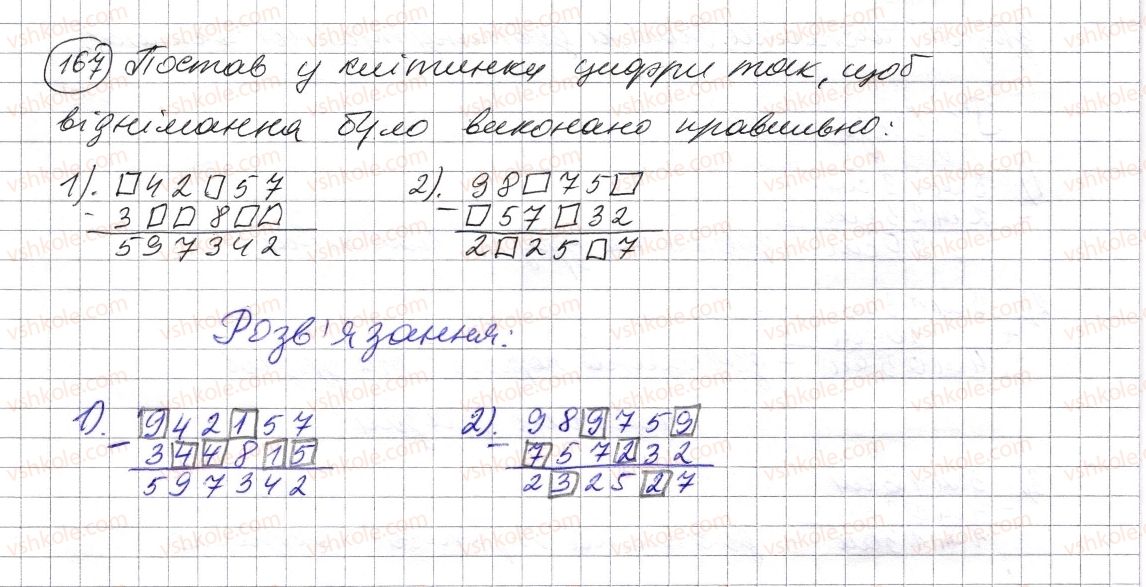 167 Постав у клітинки цифри так, щоб
віднімання було виконано правильно:
1). □42□57
- 3□□8□□
597342
2). 98□75□
- □57□32
2□25□7
Розв'язання:
1). 942157
- 344815
597342
2). 989759
- 757232
232527